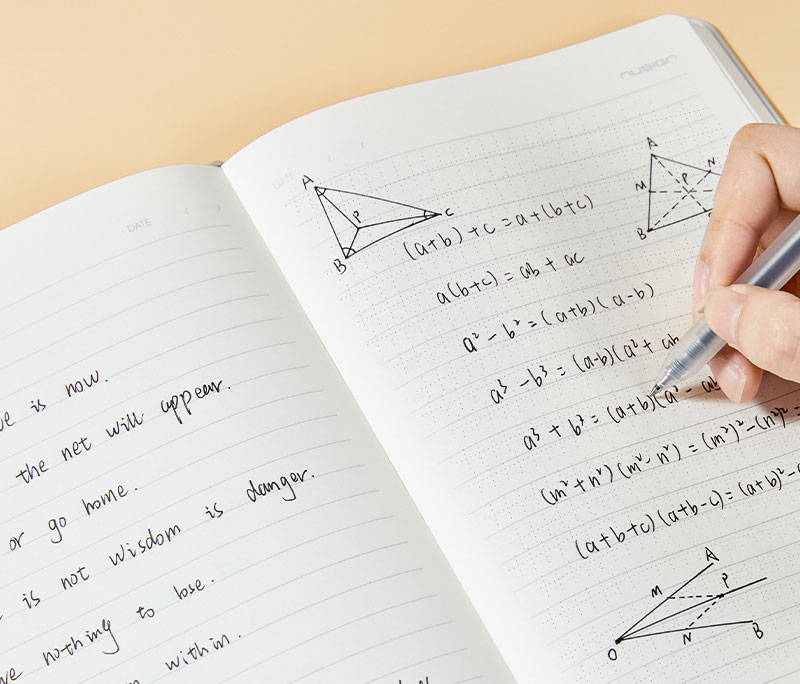 DATE / /
ve is now.
the net will appear.
or go home.
is not wisdom is danger.
ve nothing to lose.
within.
NUSIGN
DATE / /
A
P
C
B
A
N
M
P
B
(a+b)+c=a+(b+c)
a(b+c)=ab+ac
a²-b²=(a+b)(a-b)
a³-b³=(a-b)(a²+ab
a³+b³=(a+b)(a²-ab
(m²+n²)(m²-n²)=(m²)²-(n²)²=
(a+b+c)(a+b-c)=(a+b)²-
A
M
P
O
N
B